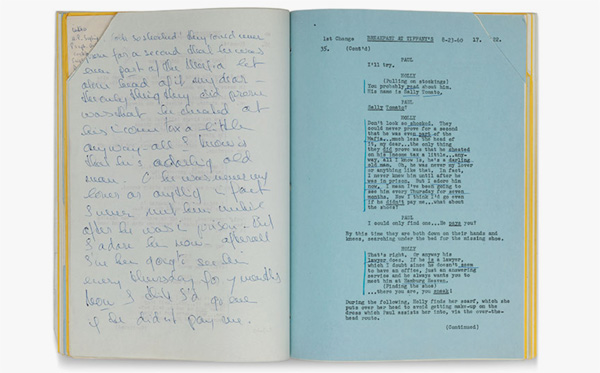 look so shocked! They could never
prove for a second that he was
even part of the Mafia let
alone head of it my dear -
the only thing they did prove
was that he cheated at
his income tax a little
anyway - all I know is
that he's a darling old
man. O he was never my
lover or anything in fact
I never met him until
after he was in prison. But
I adore him now - after all
I've been going to see him
every thursday for 7 months
now I think I'd go even
if he didn't pay me.
1st Change BREAKFAST AT TIFFANY'S 8-23-60 17. 22.
35. (Cont'd)
PAUL
I'll try.
HOLLY
(Pulling on stockings)
You probably read about him.
His name is Sally Tomato.
PAUL
Sally Tomato?
HOLLY
Don't look so shocked. They
could never prove for a second
that he was even part of the
Mafia...much less the head of
it, my dear...the only thing
they did prove was that he cheated
on his income tax a little...any-
way, All I know is, he's a darling
old man. Oh, he was never my lover
or anything like that. In fact,
I never knew him until after he
was in prison. But I adore him
now. I mean I've been going to
see him every Thursday for seven
months. Now I think I'd go even
if he didn't pay me...what about
the shoes?
PAUL
I could only find one...He pays you?
By this time they are both down on their hands and
knees, searching under the bed for the missing shoe.
HOLLY
That's right. Or anyway his
lawyer does. If he is a lawyer,
which I doubt since he doesn't seem
to have an office, just an answering
service and he always wants you to
meet him at Hamburg Heaven.
(Finding the shoe)
...there you are, you sneak!
During the following, Holly finds her scarf, which she
puts over her head to avoid getting make-up on the
dress which Paul assists her into, via the over-the-
head route.
(Continued)